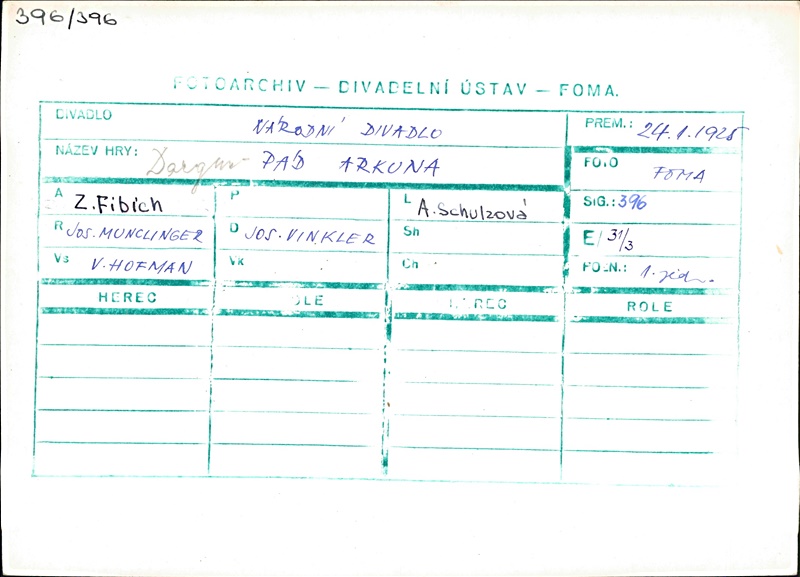 396/396
FOTOARCHIV — DIVADELNÍ ÚSTAV — FOMA.
DIVADLO NÁRODNÍ DIVADLO PREM.: 24.1.1925
NÁZEV HRY: Dargun PÁD ARKUNA FOTO FOMA
A Z. Fibich P L A. Schulzová SIG.: 396
R JOS. MUNCLINGER D JOS. VINKLER Sh E/ 31/3
Vs V. HOFMAN Vk Ch POZN.: 1. jed.
HEREC ROLE HEREC ROLE